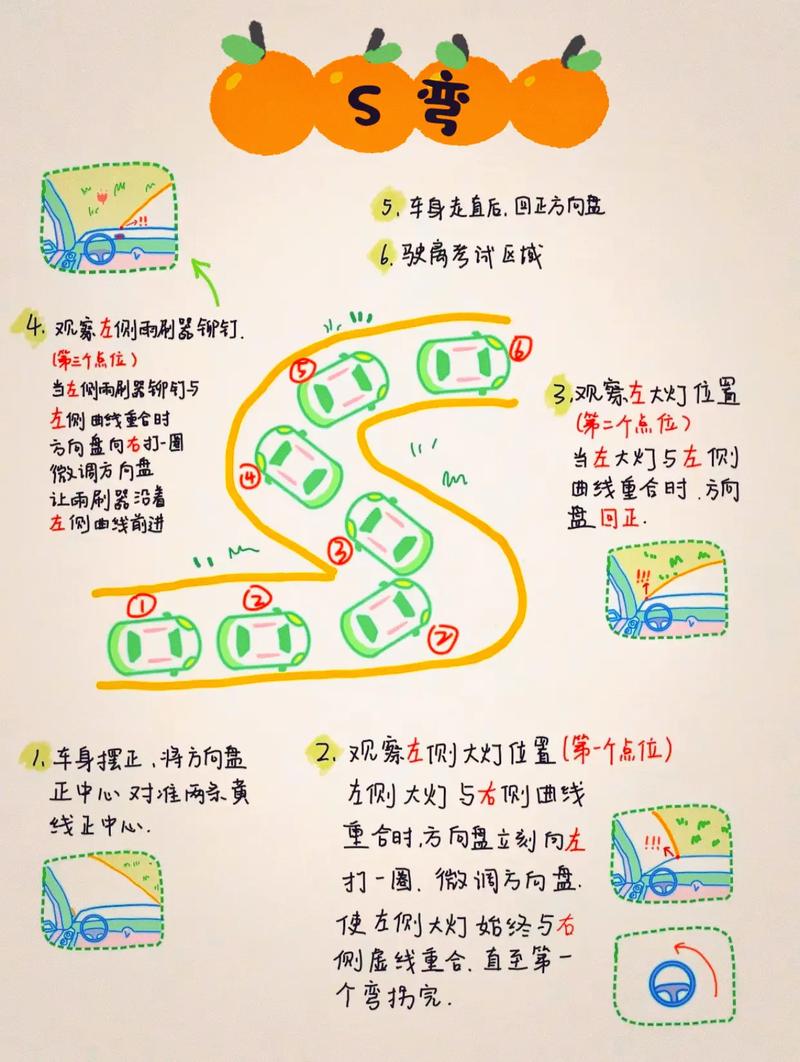 S弯
5. 车身走直后,回正方向盘
6. 驶离考试区域
4. 观察左侧雨刷器铆钉.
(第三个点位)
当左侧雨刷器铆钉与
左侧曲线重合时
方向盘向右打一圈
微调方向盘
让雨刷器沿着
左侧曲线前进
3. 观察左大灯位置
(第二个点位)
当左大灯与左侧
曲线重合时.方向
盘回正.
!!
⑤
⑥
④
③
!!!
①
②
②
1. 车身摆正,将方向盘
正中心对准两条黄
线正中心.
2. 观察左侧大灯位置(第一个点位)
左侧大灯与右侧曲线
重合时,方向盘立刻向左
打一圈.微调方向盘.
使左侧大灯始终与右
侧虚线重合.直至第一
个弯拐完.
!!!